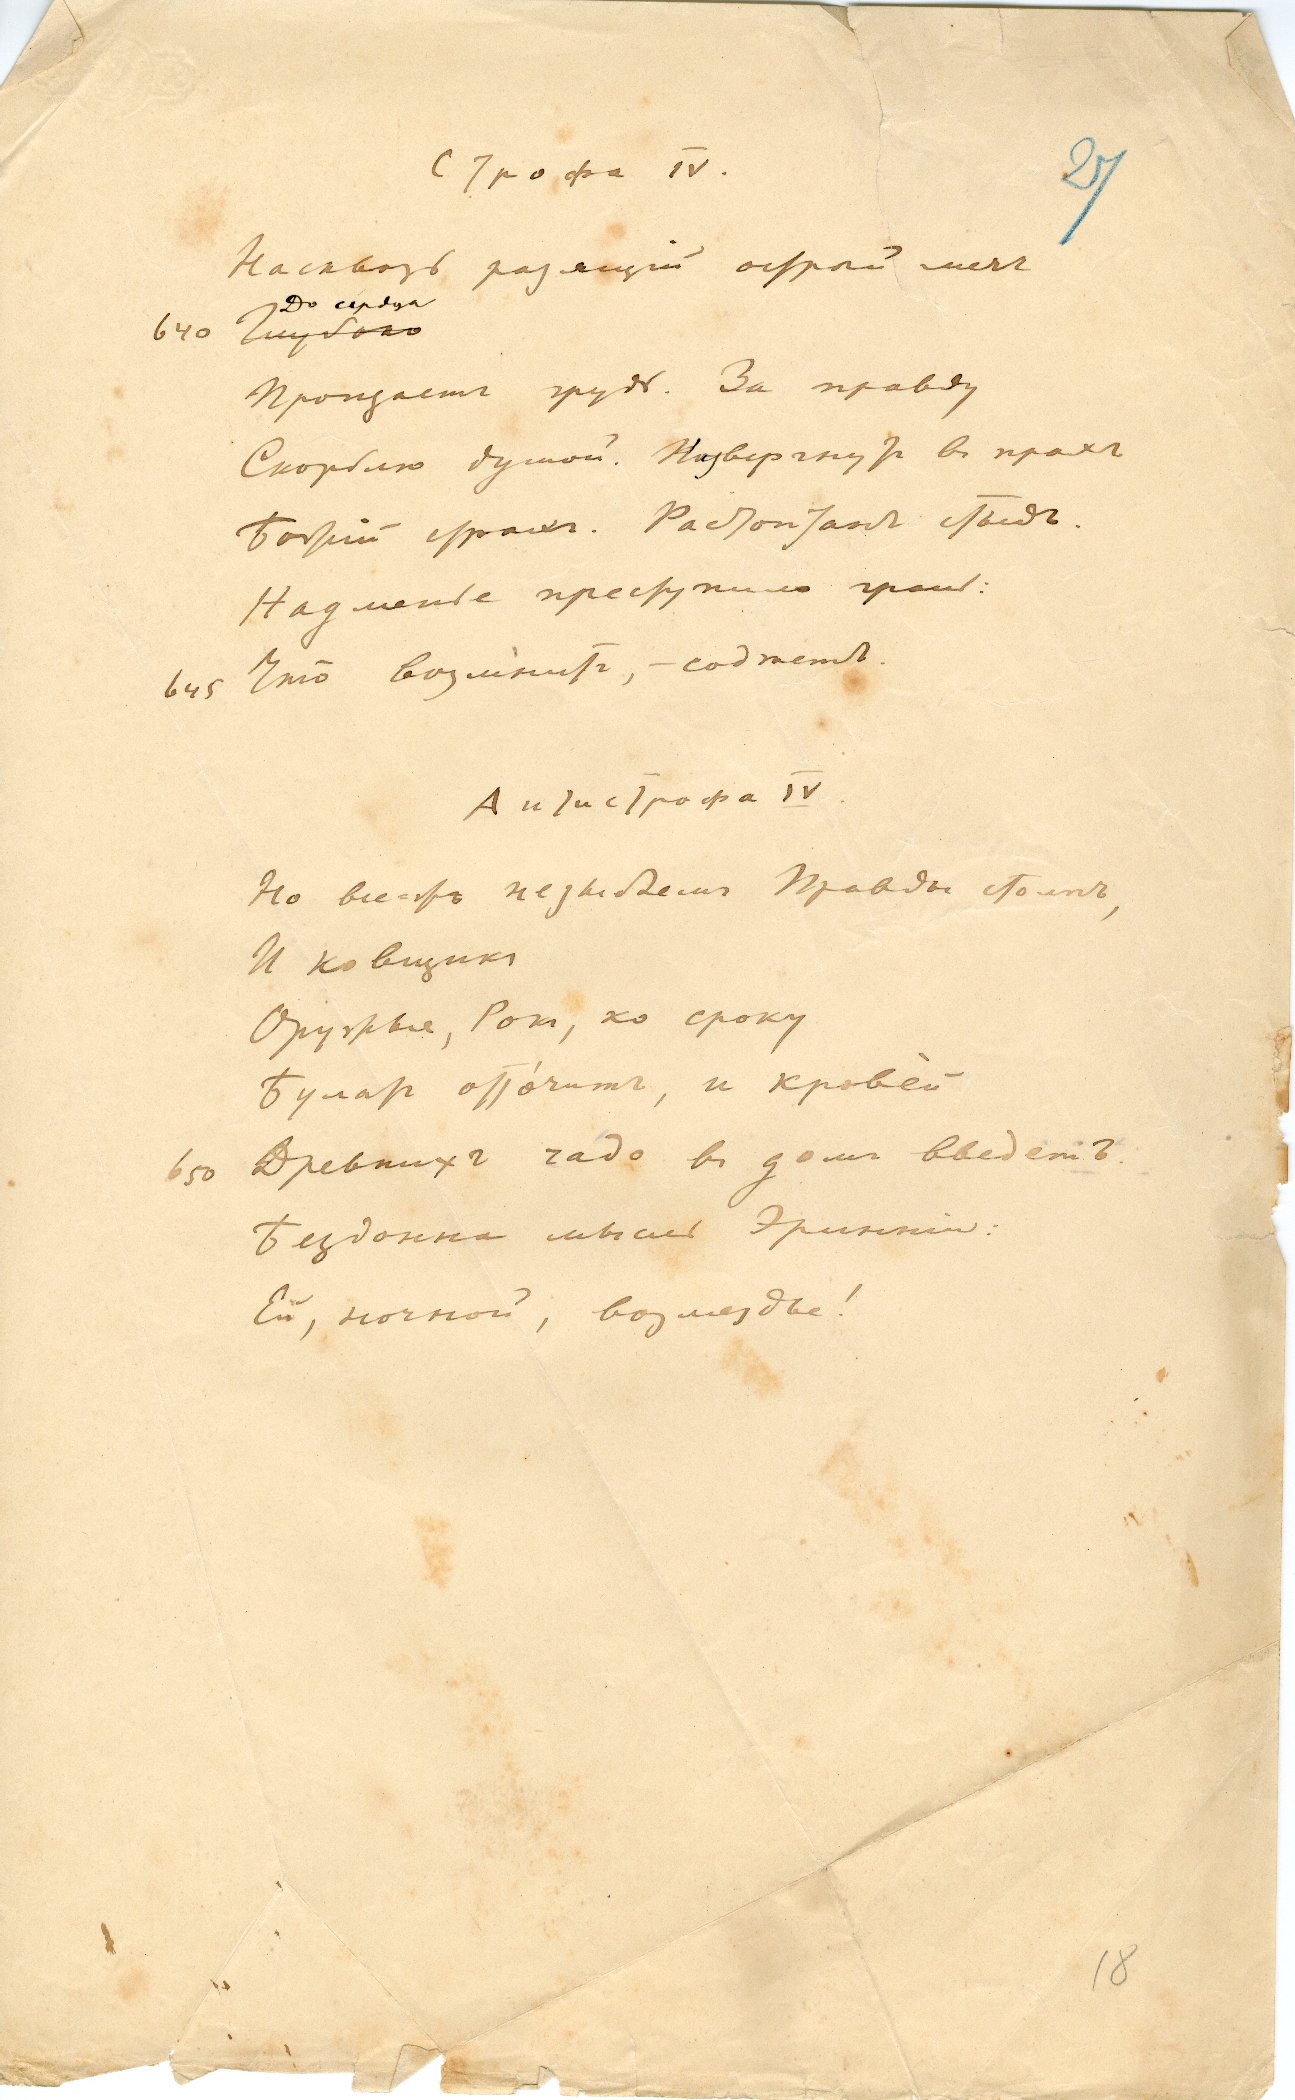 Строфа IV.
27
Насквозь разящій острый мечъ
До сердца
640 Глубоко
Пронзаетъ грудь. За правду
Скорблю душой. Низвергнутъ въ прахъ
Божій страхъ. Растоптанъ стыдъ.
Надменье преступило грань:
645 Что возмнитъ, – содѣетъ.
Антистрофа IV.
Но весь незыблемъ Правды столпъ,
И ковщикъ
Оружья, Рокъ, ко сроку
Булатъ отточитъ, и кровей
650 Древнихъ чадо въ домъ введетъ.
Бездонна мысль Эринніи:
Ей, ночной, возмездье!
18